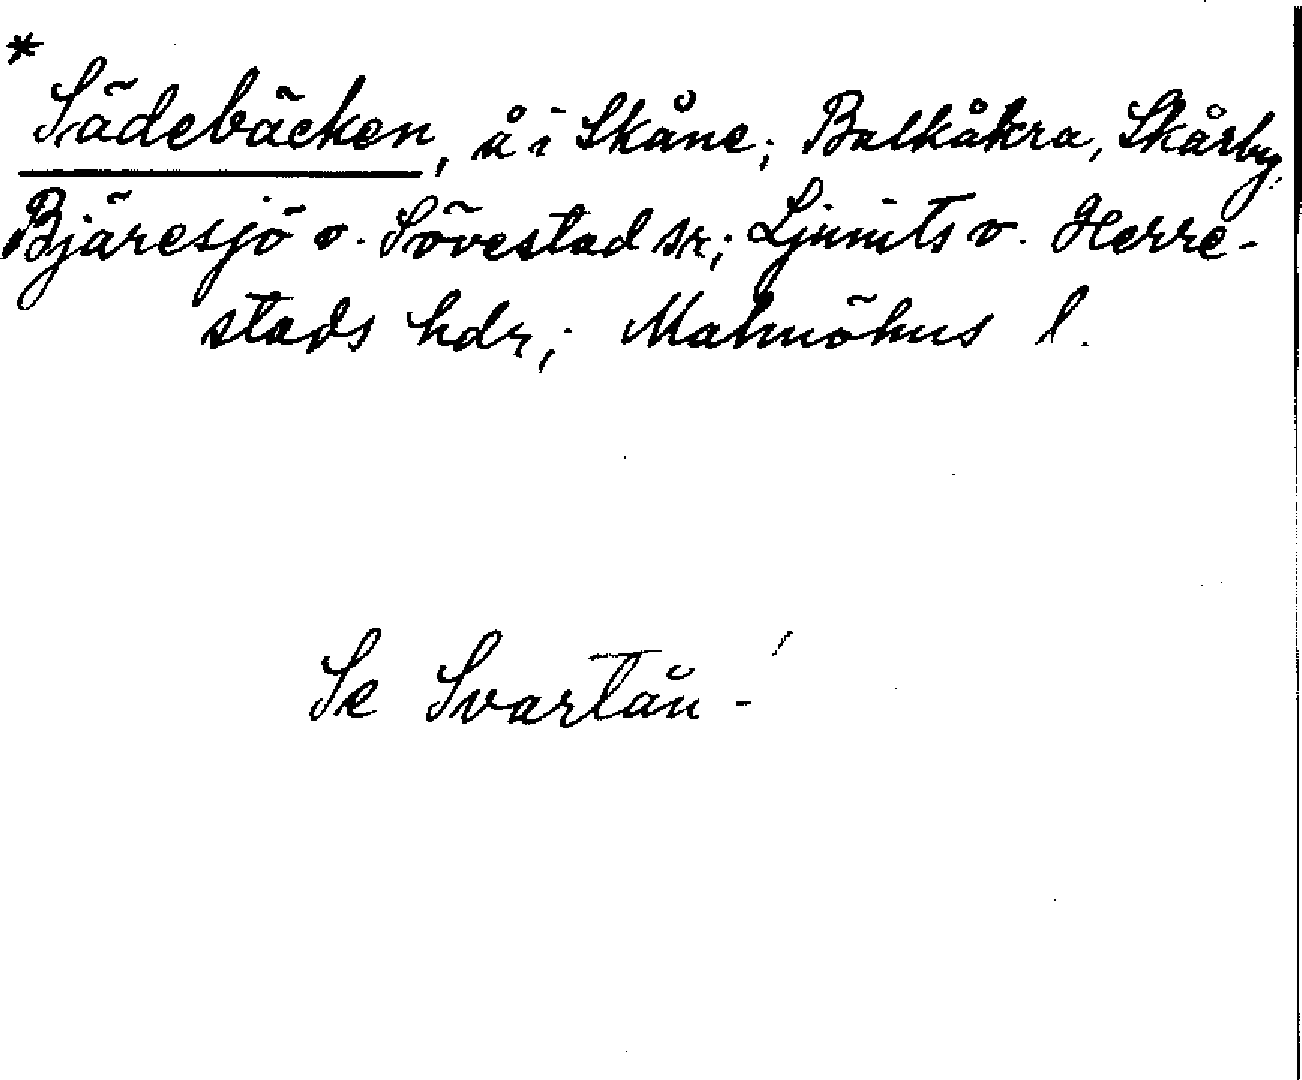 *
Sädebäcken, å i Skåne; Balkåkra, Skårby,
Bjäresjö o. Sövestad sr; Ljunits o. Herre-
stads hdr; Malmöhus l.
Se Svartån -!